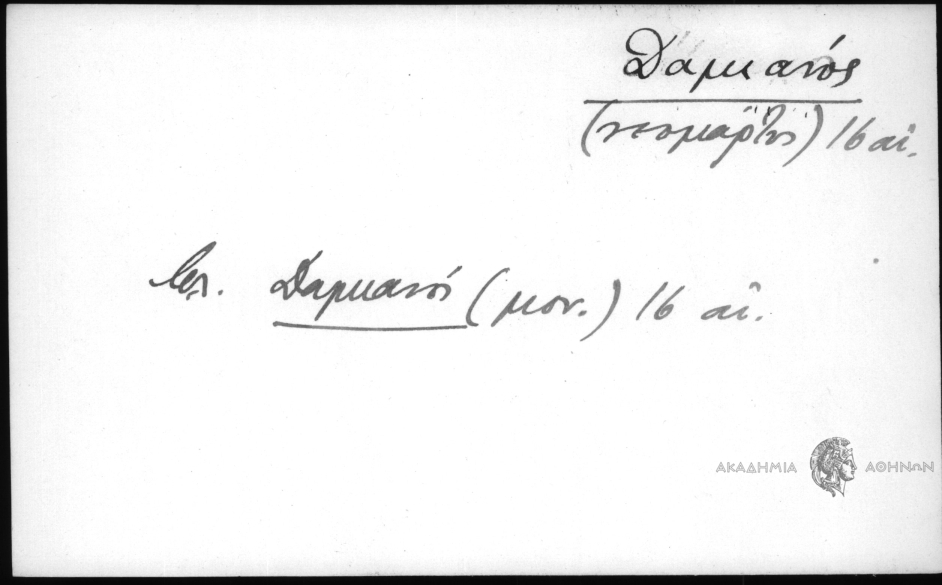 Δαμιανός
(νεομάρτυς) 16 αἰ.
βλ. Δαμιανός (μον.) 16 αἰ.
ΑΚΑΔΗΜΙΑ ΑΘΗΝΩΝ